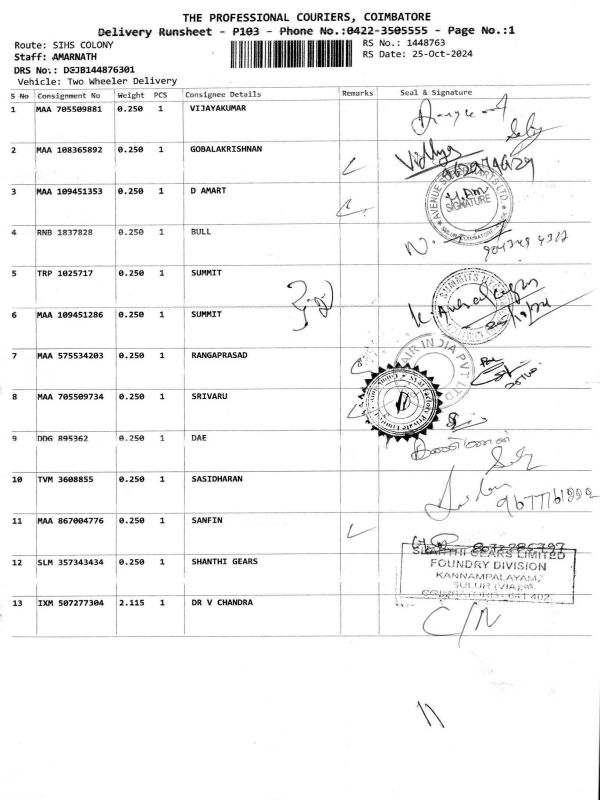 THE PROFESSIONAL COURIERS, COIMBATORE
Delivery Runsheet - P103 - Phone No.:0422-3505555 - Page No.:1
Route: SIHS COLONY
RS No.: 1448763
Staff: AMARNATH
RS Date: 25-Oct-2024
DRS No.: DCJB144876301
Vehicle: Two Wheeler Delivery
S No Consignment No Weight PCS Consignee Details Remarks Seal & Signature
1 MAA 705509881 0.250 1 VIJAYAKUMAR
2 MAA 108365892 0.250 1 GOBALAKRISHNAN Vidhya
3 MAA 109451353 0.250 1 D AMART
SIGNATURE
4 RNB 1837828 0.250 1 BULL
5 TRP 1025717 0.250 1 SUMMIT
6 MAA 109451286 0.250 1 SUMMIT
7 MAA 575534203 0.250 1 RANGAPRASAD
AIR INDIA PVT LTD
8 MAA 705509734 0.250 1 SRIVARU
9 DDG 895362 0.250 1 DAE
10 TVM 3608855 0.250 1 SASIDHARAN
11 MAA 867004776 0.250 1 SANFIN
12 SLM 357343434 0.250 1 SHANTHI GEARS
SHANTHI GEARS LIMITED
FOUNDRY DIVISION
KANNAMPALAYAM,
SULUR (VIA),
COIMBATORE - 641 402.
13 IXM 507277304 2.115 1 DR V CHANDRA
C/N
11